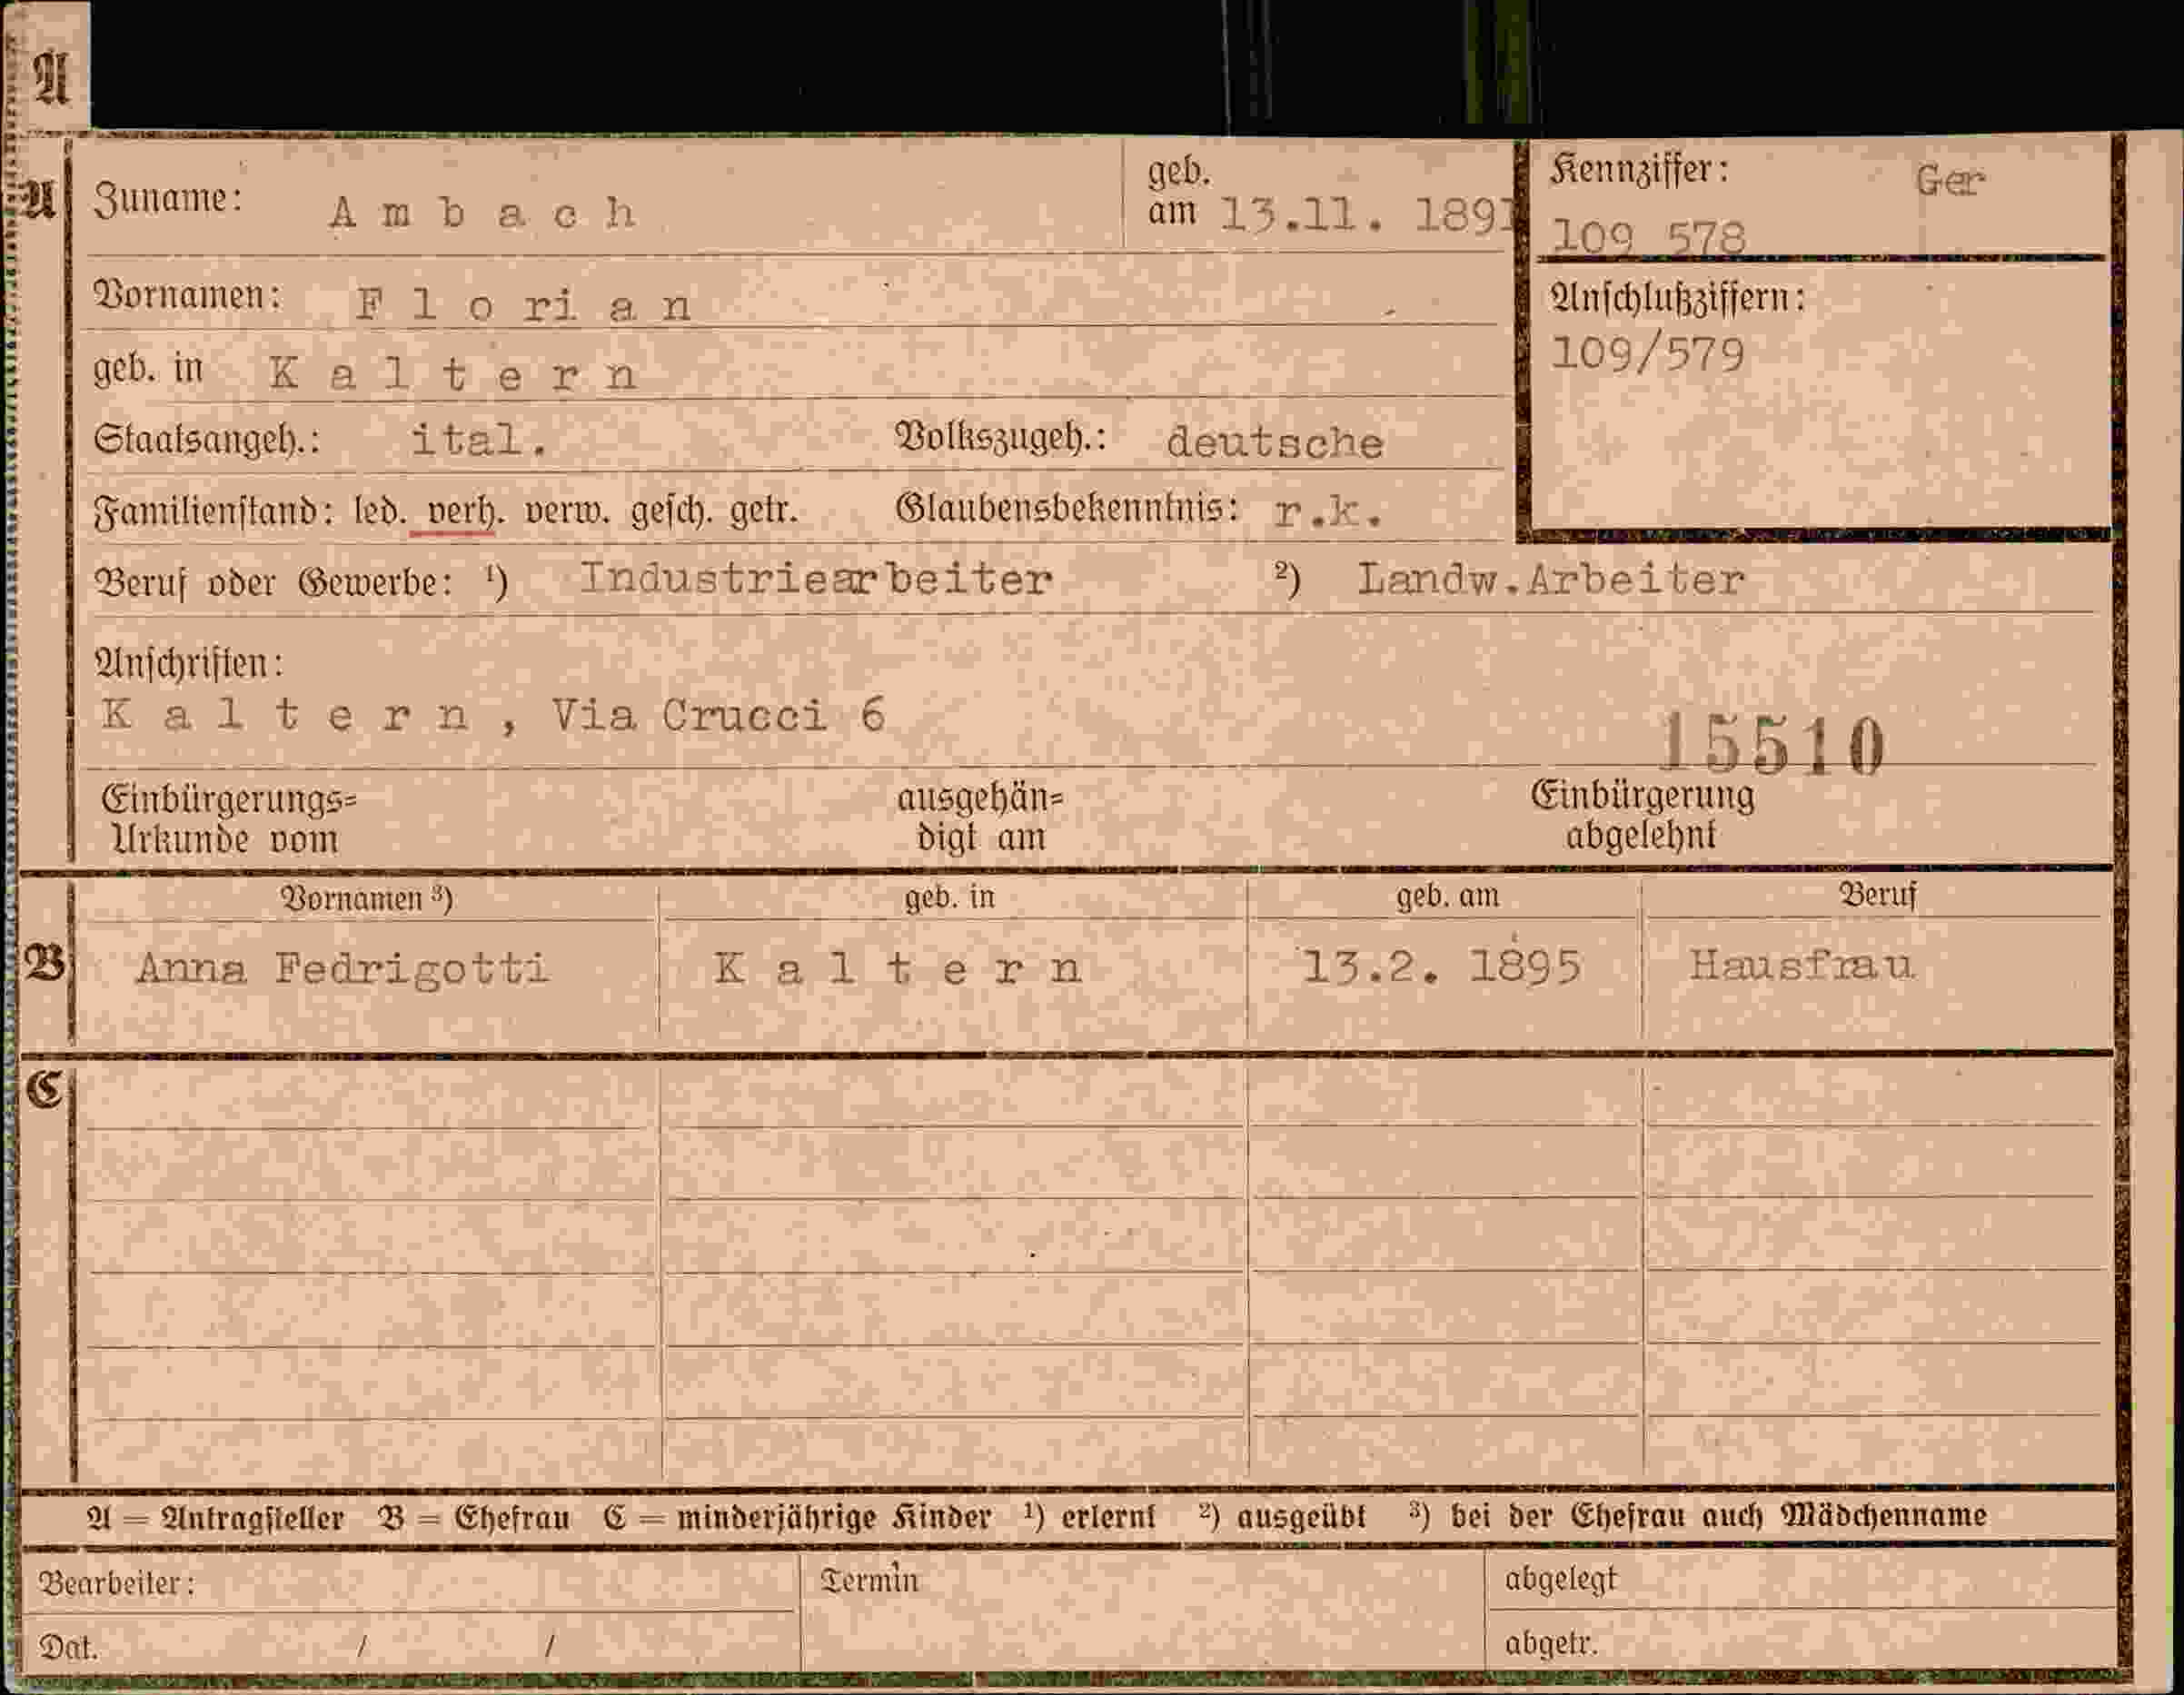 A
A
Zuname: Ambach geb. am 13.11. 1891
Kennziffer: Ger
109 578
Vornamen: Florian
Anschlußziffern:
109/579
geb. in Kaltern
Staatsangeh.: ital. Volkszugeh.: deutsche
Familienstand: led. verh. verw. gesch. getr. Glaubensbekenntnis: r.k.
Beruf oder Gewerbe: ¹) Industriearbeiter ²) Landw.Arbeiter
Anschriften:
Kaltern, Via Crucci 6
15510
Einbürgerungs= ausgehän= Einbürgerung
Urkunde vom digt am abgelehnt
Vornamen ³) geb. in geb. am Beruf
B Anna Fedrigotti Kaltern 13.2. 1895 Hausfrau
C
A = Antragsteller B = Ehefrau C = minderjährige Kinder ¹) erlernt ²) ausgeübt ³) bei der Ehefrau auch Mädchenname
Bearbeiter: Termin abgelegt
Dat. / / abgetr.